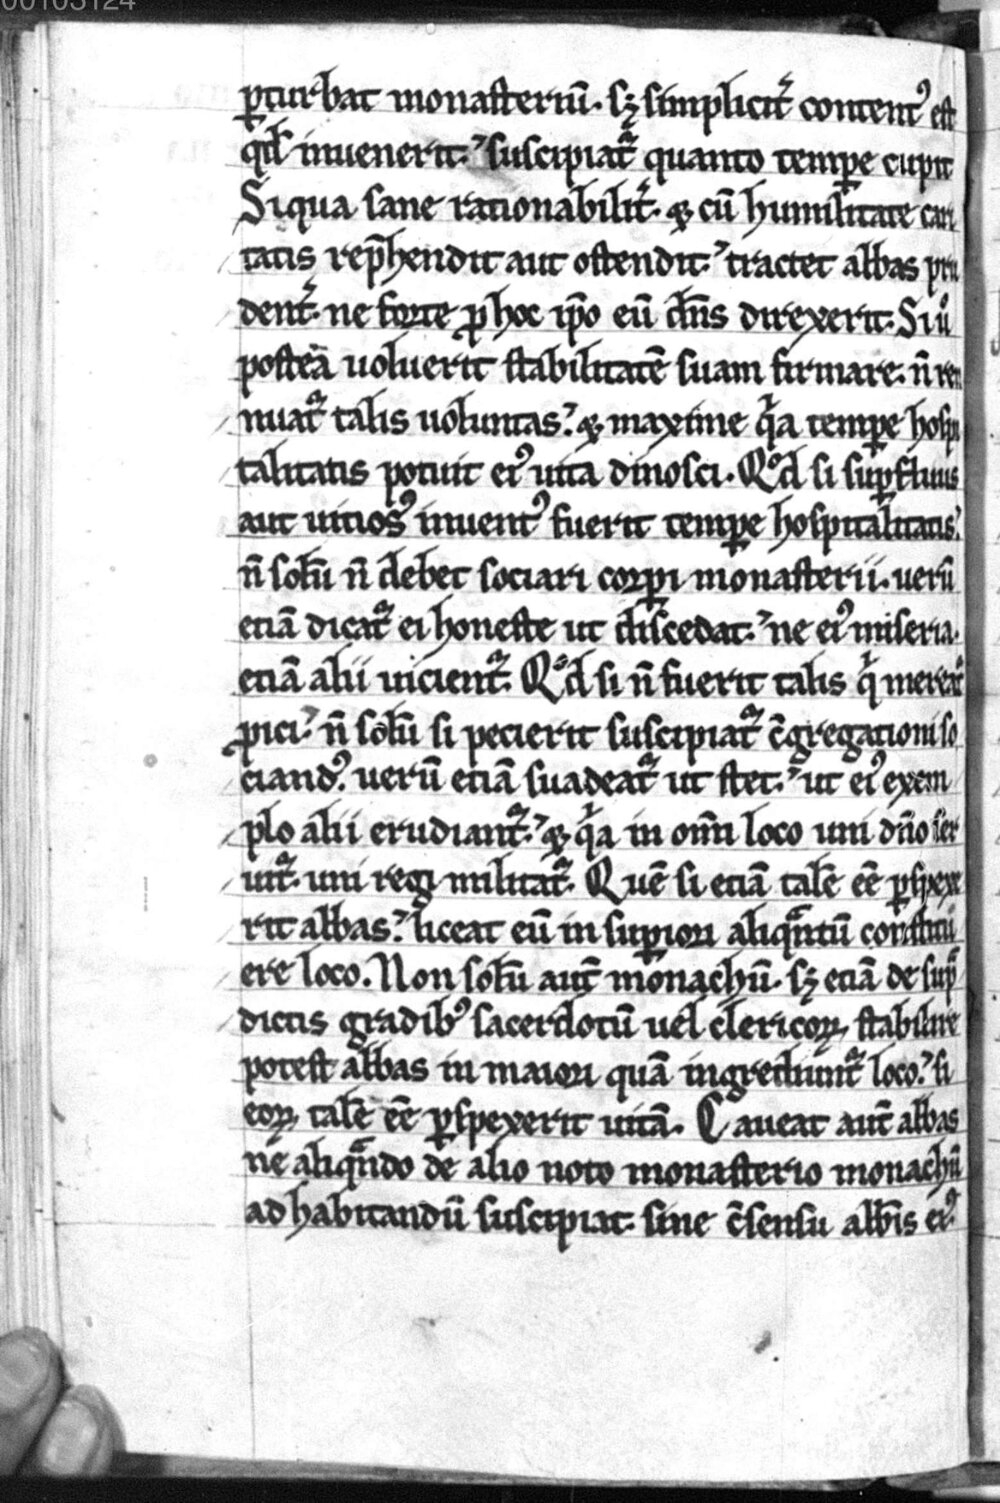 00103124
ꝑturbat monasteriũ. sꝫ simplicit᷑ content᷒ est
qđ inuenerit. suscipiat᷑ quanto tempe cupit
Siqua sane rationabilit᷑. ⁊ cũ humilitate cari
tatis rep̃hendit aut ostendit. tractet abbas pru
dent᷑. ne forte ꝓ hoc ip̃o eũ dñs direxerit. Si ů
postea uoluerit stabilitatẽ suam firmare. ñ ren
nuat᷑ talis uoluntas. ⁊ maxime qͥa tempe hospi
talitatis potuit ei᷒ uita dinosci. Qͦd si suꝑfluus
aut uitios᷒ inuent᷒ fuerit tempe hospitalitatis.
ñ solũ ñ debet sociari corpi monasterii. uerũ
etiã dicat᷑ ei honeste ut discedat. ne ei᷒ miseria.
etiã alii uicient᷑. Qͦd si ñ fuerit talis qͥ mereat᷑
ꝓici. ñ solũ si pecierit suscipiat᷑ c̃gregationi so
ciand᷒. uerũ etiã suadeat᷑ ut stet. ut ei᷒ exem
plo alii erudiant᷑. ⁊ qͥa in om̃i loco uni dño ser
uit᷑. uni regi militat᷑. Quẽ si etiã talẽ eẽ ꝑspexe
rit abbas. liceat eũ in suꝑiori aliqᷓntũ constitu
ere loco. Non solũ aut̃ monachũ. sꝫ etiã de sup̃
dictis gradib᷒ sacerdotũ uel clericoꝝ stabilire
potest abbas in maiori quã ingrediunt᷑ loco. si
eoꝝ talẽ eẽ ꝑspexerit uitã. Caueat aut̃ abbas
ne aliqᷓndo de alio noto monasterio monachũ
ad habitandũ suscipiat. sine c̃sensu abb̃is ei᷒.